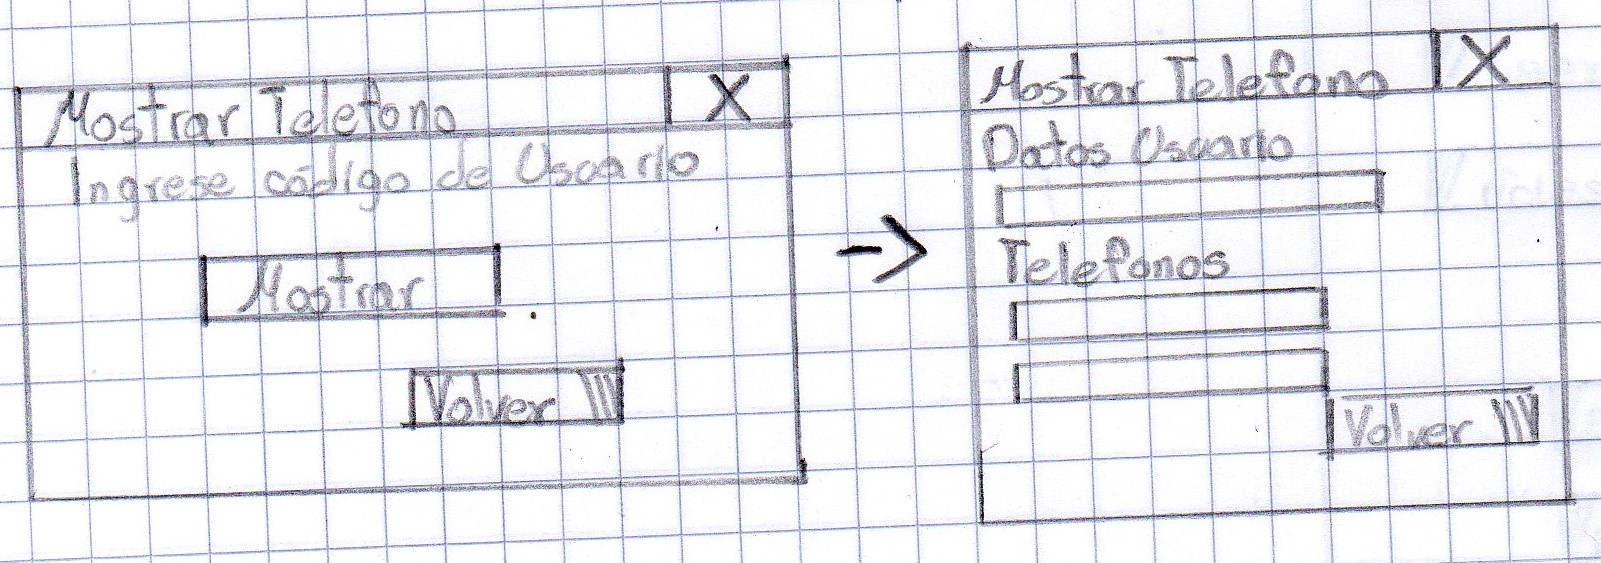 Mostrar Telefono X
Ingrese código de Usuario
Mostrar
Volver
->
Mostrar Telefono X
Datos Usuario
Telefonos
Volver